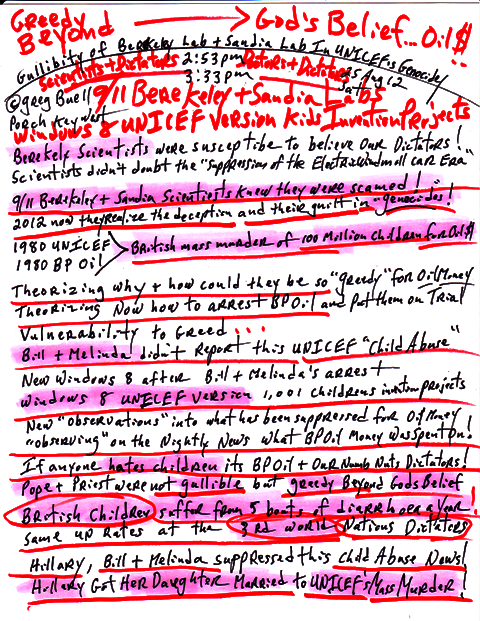 Greedy Beyond → God's Belief... Oil $
Gullibity of Berkeley Lab + Sandia Lab In UNICEF's Genocide/
Scientists + Dictators 2:53pm Doctors + Dictators
3:33pm 25 Aug 12
© Greg Buell
Porch Key West
9/11 Berekeley + Sandia Labs
Windows 8 UNICEF Version Kids Invention Projects
Berkely Scientists were susceptibe to believe Our Dictators!
Scientists didn't doubt the "suppression of the Electricwindmill car Era"
9/11 Berekeley + Sandia Scientists knew they were scamed!
2012 now they realize the deception and their guilt in "genocides!
1980 UNICEF
1980 BP Oil > British mass murder of 100 Million Children for Oil $
Theorizing why + how could they be so "greedy" for Oil Money
Theorizing Now how to arrest BP Oil and put them on Trial
Vulnerability to Greed...
Bill + Melinda didn't Report this UNICEF "Child Abuse"
New Windows 8 after Bill + Melinda's arrest
Windows 8 UNICEF Version 1,001 Childrens invention projects
New "observations" into what has been suppressed for Oil Money
"observing" on the Nightly News what BP Oil Money was Spent On!
If anyone hates children its BP Oil + Our Numb Nuts Dictators!
Pope + Priest were not gullible but greedy Beyond Gods Belief
British Children suffer from 5 bouts of diarrhoea a Year!
same up Rates at the 3rd world Nations Dictators
Hillary, Bill + Melinda suppressed this Child Abuse News!
Hillary Got Her Daughter Married to UNICEF's Mass Murder!